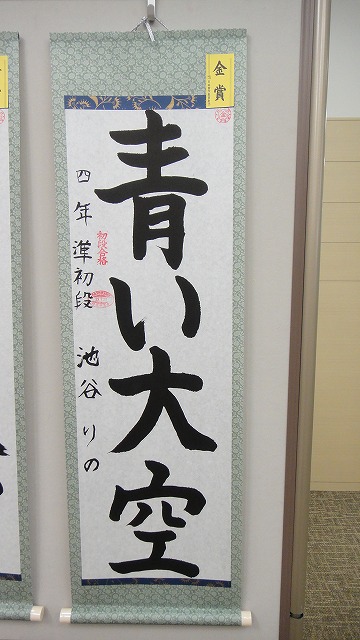 金賞
青い大空
初段合格
四年 準初段 池谷りの